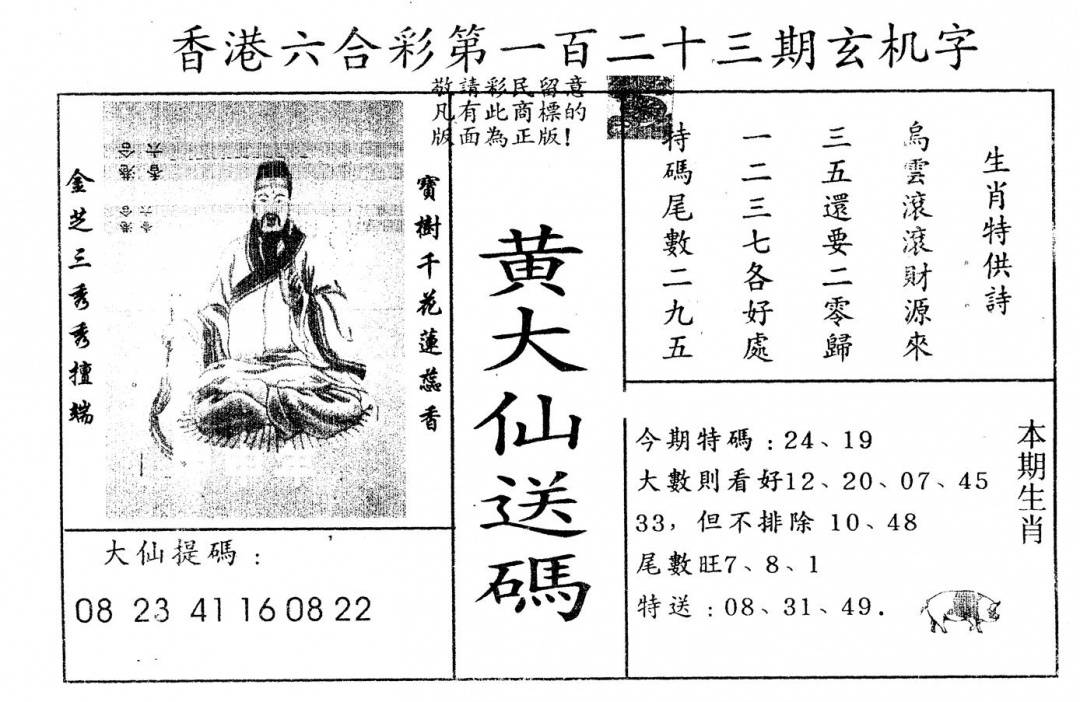 香港六合彩第一百二十三期玄机字
敬請彩民留意
凡有此商標的
版面為正版!
金芝三秀秀擅端
寶樹千花蓮蕊香
香港
六合
香港
六合
黄大仙送碼
生肖特供詩
烏雲滾滾財源來
三五還要二零歸
一二三七各好處
特碼尾數二九五
大仙提碼:
08 23 41 16 08 22
本期生肖
今期特碼:24、19
大數則看好12、20、07、45
33,但不排除 10、48
尾數旺7、8、1
特送:08、31、49.